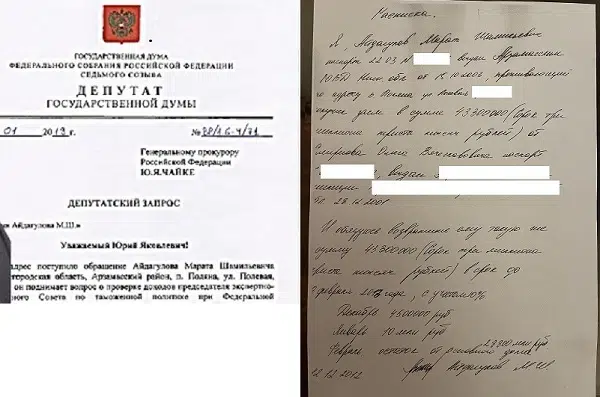 ГОСУДАРСТВЕННАЯ ДУМА
ФЕДЕРАЛЬНОГО СОБРАНИЯ РОССИЙСКОЙ ФЕДЕРАЦИИ
СЕДЬМОГО СОЗЫВА
ДЕПУТАТ
ГОСУДАРСТВЕННОЙ ДУМЫ
01 2019 г.
Генеральному прокурору
Российской Федерации
Ю.Я.ЧАЙКЕ
ДЕПУТАТСКИЙ ЗАПРОС
Айдагулова М.Ш.»
Уважаемый Юрий Яковлевич!
адрес поступило обращение Айдагулова Марата Шамильевича
городская область, Арзамасский район, п. Поляна, ул. Полевая,
он поднимает вопрос о проверке доходов председателя экспертно-
ного Совета по таможенной политике при Федеральной
Расписка.
Я, Айдагулов Марат Шамильевич
паспорт 22 03 № выдан Арзамасским
проживающий
в сумме 43300000 (Сорок три
миллиона триста тысяч рублей) от
Олега Вячеславовича паспорт
выдан
28.12.2001
И обязуюсь возвратить ему такую же
сумму 43300000 (Сорок три миллиона
триста тысяч рублей) в срок до
февраля года, с учетом 10%
Декабрь 4500000 руб
Январь 10 млн руб
Февраль остаток от основного долга 28800 млн руб
12.12.2012 Айдагулов М.Ш.